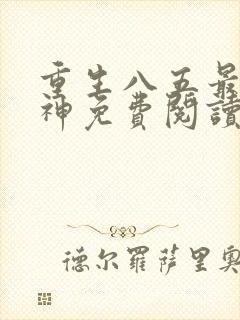 重生八五最
神免费閱讀
德尔羅薩里奥